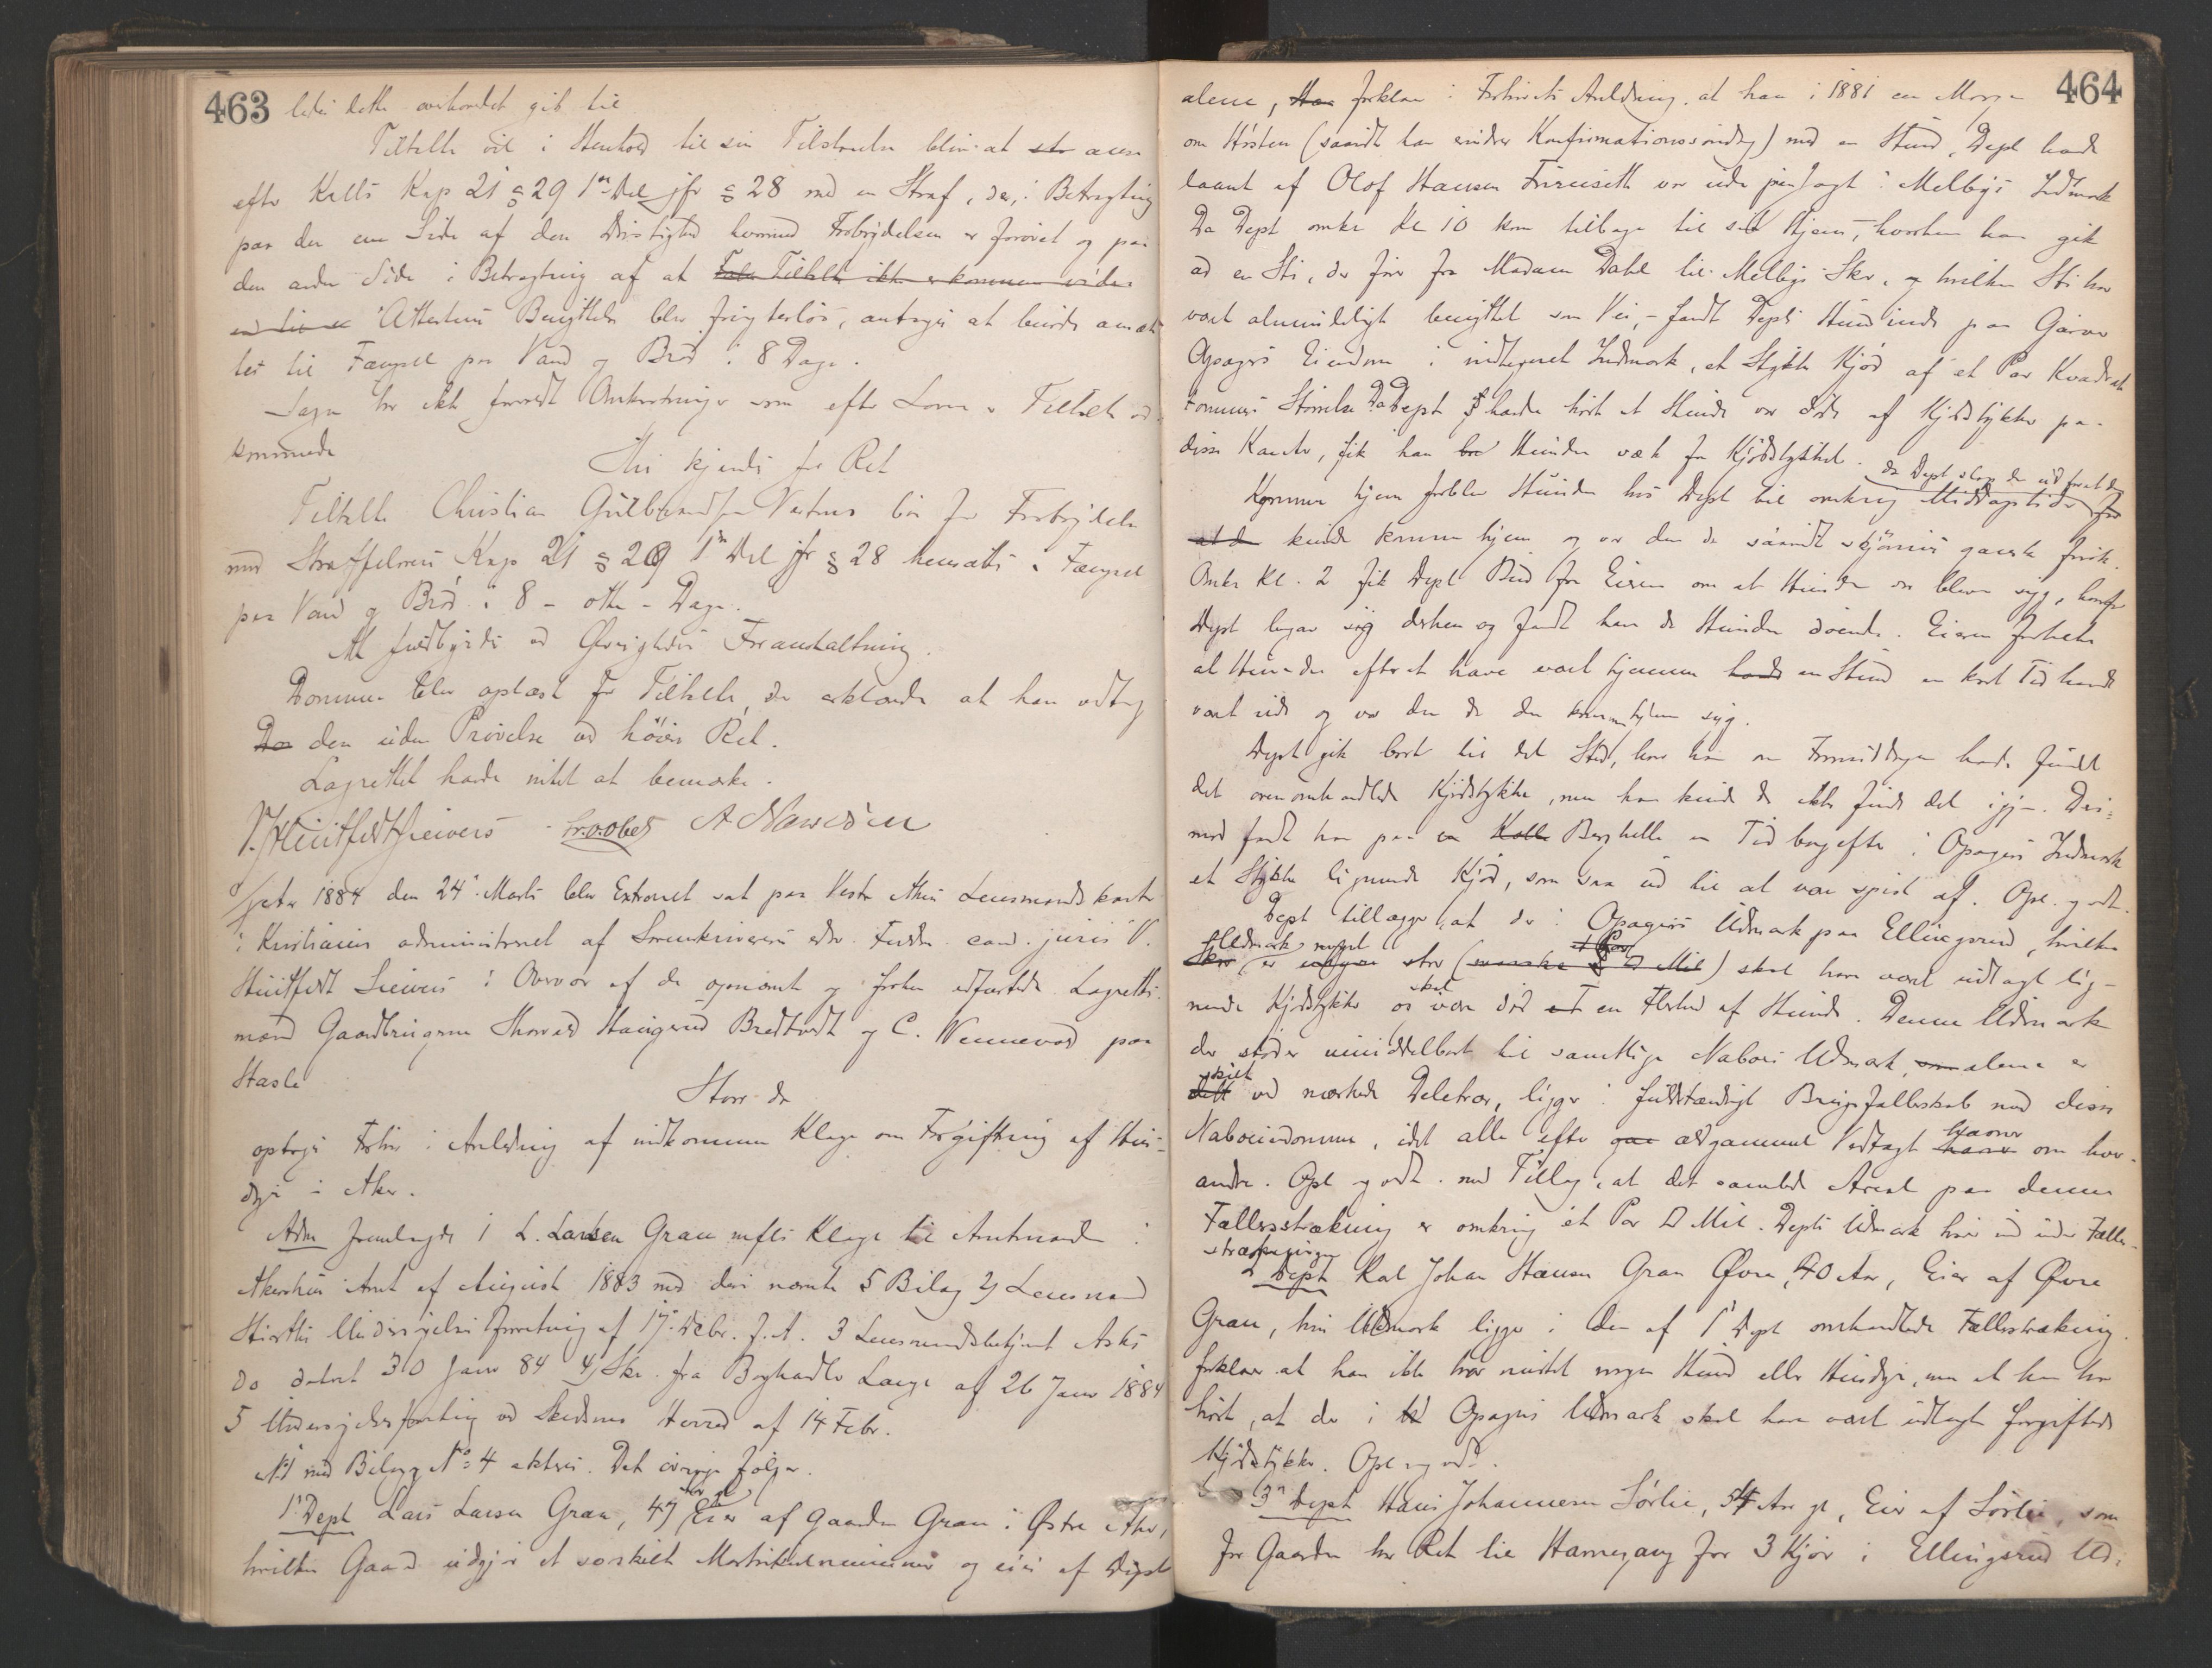 463
ledes dette overhovedet gik til
Tiltalte vil i Henhold til sin Tilstaaelse blive at anse
efter Krlls Kap 21 § 29 1ste Del jfr § 28 med en Straf, der, i Betragtning
paa den ene Side af den Dristighed hvormed Forbrydelsen er forøvet og paa
den anden Side i Betragtning af at Tiltalte ikke er kommen videre
Attestens Benyttelse blev frugtesløs, antages at burde ansæt
tes til Fængsel paa Vand og Brød i 8 Dage.
Sagen har ikke forvoldt Omkostninger som efter Loven er Tiltalte ved-
kommende
Thi kjendes for Ret
Tiltalte Christian Gulbrandsen bør for Forbrydelse
mod Straffelovens Kap 21 § 29 1ste Del jfr § 28 hensættes i Fængsel
paa Vand og Brød i 8 - otte - Dage.
At fuldbyrdes ved Øvrighedens Foranstaltning.
Dommen blev oplæst for Tiltalte, der erklærede at han vedtog
den uden Prøvelse ved høiere Ret.
Lagrettet havde intet at bemærke.
V. Huitfeldt Sievers
Aar 1884 den 24de Marts blev Extraret sat paa Vestre Akers Lensmandskontor
i Kristiania administreret af Sorenskriverens edsv. Fuldm. cand. juris V.
Huitfeldt Sievers i Overvær af de opnævnte og forhen edfæstede Lagrettes-
mænd Gaardbrugerne Thorvald Haugerud Bredtvedt og C. Wennevold paa
Hasle
Hvor da
optoges Forhør i Anledning af indkommen Klage om Forgiftning af Hus-
dyr i Aker.
Adm fremlagde 1 L. Larsen Grau mfls Klage til Amtmanden i
Akershus Amt af August 1883 med deri nævnte 5 Bilag 2) Lensmand
Undersøgelsesforretning af 17de Decbr. f.A. 3 Lensmandsbetjent Asks
do dateret 30 Janr 84 4) Skr. fra Boghandler Lange af 26 Janr 1884
5 Undersøgelsesforretning ved Skedsmo Herred af 14 Febr.
No 1 med Bilag og No 4 akteres. Det øvrige følger.
1ste Dept Lars Larsen Grau, 47 Aar gl Eier af Gaarden Grau i Østre Aker,
hvilken Gaard udgjør et særskilt Matrikulnummer og eies af Dept
464
alene, forklarer i Forhørets Anledning at han i 1881 en Morgen
om Høsten (saavidt han erindrer Konfirmationssøndag) med en Hund, Dept havde
laant af Olof Hansen Furuseth var ude paa Jagt i Melbys Udmark
Da Dept omkr Kl 10 kom tilbage til sit Hjem, hvorhen han gik
ad en Sti, der fører fra Madam Dahl til Melbys Skov, og hvilken Sti har
vært almindeligt benyttet som Vei, - fandt Depts Hund inde paa Gaarden
Opagers Eiendom i indhegnet Indmark, et Stykke Kjød af et Par Kvadrat
tommers Størrelse Da Dept havde hørt at Hunde var døde af Kjødstykker paa
disse Kanter, fik han Hunden væk fra Kjødstykket.
Kommen hjem forblev Hunden hos Dept til omkring Middagstider da Dept slap den ud forat den
kunde komme hjem og var den da saavidt skjønnes ganske frisk.
Omkr Kl. 2 fik Dept Bud fra Eieren om at Hunden var bleven syg, hvorfor
Dept begav sig derhen og fandt han da Hunden døende. Eieren fortalte
at Hunden efter at have vært hjemme en Stund en kort Tid havde
vært ude og var den da den kom hjem syg.
Dept gik bort til det Sted, hvor han om Formiddagen havde fundet
det ovenomhandlede Kjødstykke, men han kunde da ikke finde det igjen. Der-
imod fandt han paa en Berghelle en Tid bagefter i Opagers Indmark
et Stykke lignende Kjød, som saa ud til at være spist af. Opl. og vedt.
Dept tillægger, at der i Opagers Udmark paa Ellingsrud, hvilken
Udmark er meget stor (svenske et Par □ Mil) skal have vært udlagt lig-
nende Kjødstykker og skal være død en Flerhed af Hunde. Denne Udmark
der støder umiddelbart til samtlige Naboers Udmark, alene er
skilt ved mærkede Deletrær, ligger i fuldstændigt Brugsfællesskab med disse
Naboeiendomme, idet alle efter ældgammel Vedtægt havner om hver-
andre. Opl og vedt. med Tillæg, at det samlede Areal paa denne
Fællesstrækning er omkring et Par □ Mil. Depts Udmark hører ind under Fælles-
strækningen
2 Dept Karl Johan Hansen Grau Øvre, 40 Aar, Eier af Øvre
Grau, hvis Udmark ligger i den af 1ste Dept omhandlede Fællesstrækning.
forklarer at han ikke har mistet nogen Hund eller Husdyr, men at han har
hørt, at der i Opagers Udmark skal have vært udlagt forgiftede
Kjødstykker. Opl og vedt.
3die Dept Hans Johannesen Sørlie, 54 Aar gl, Eier af Sørlie, som
for Gaarden har Ret til Havnegang for 3 Kjør i Ellingsrud Ud-